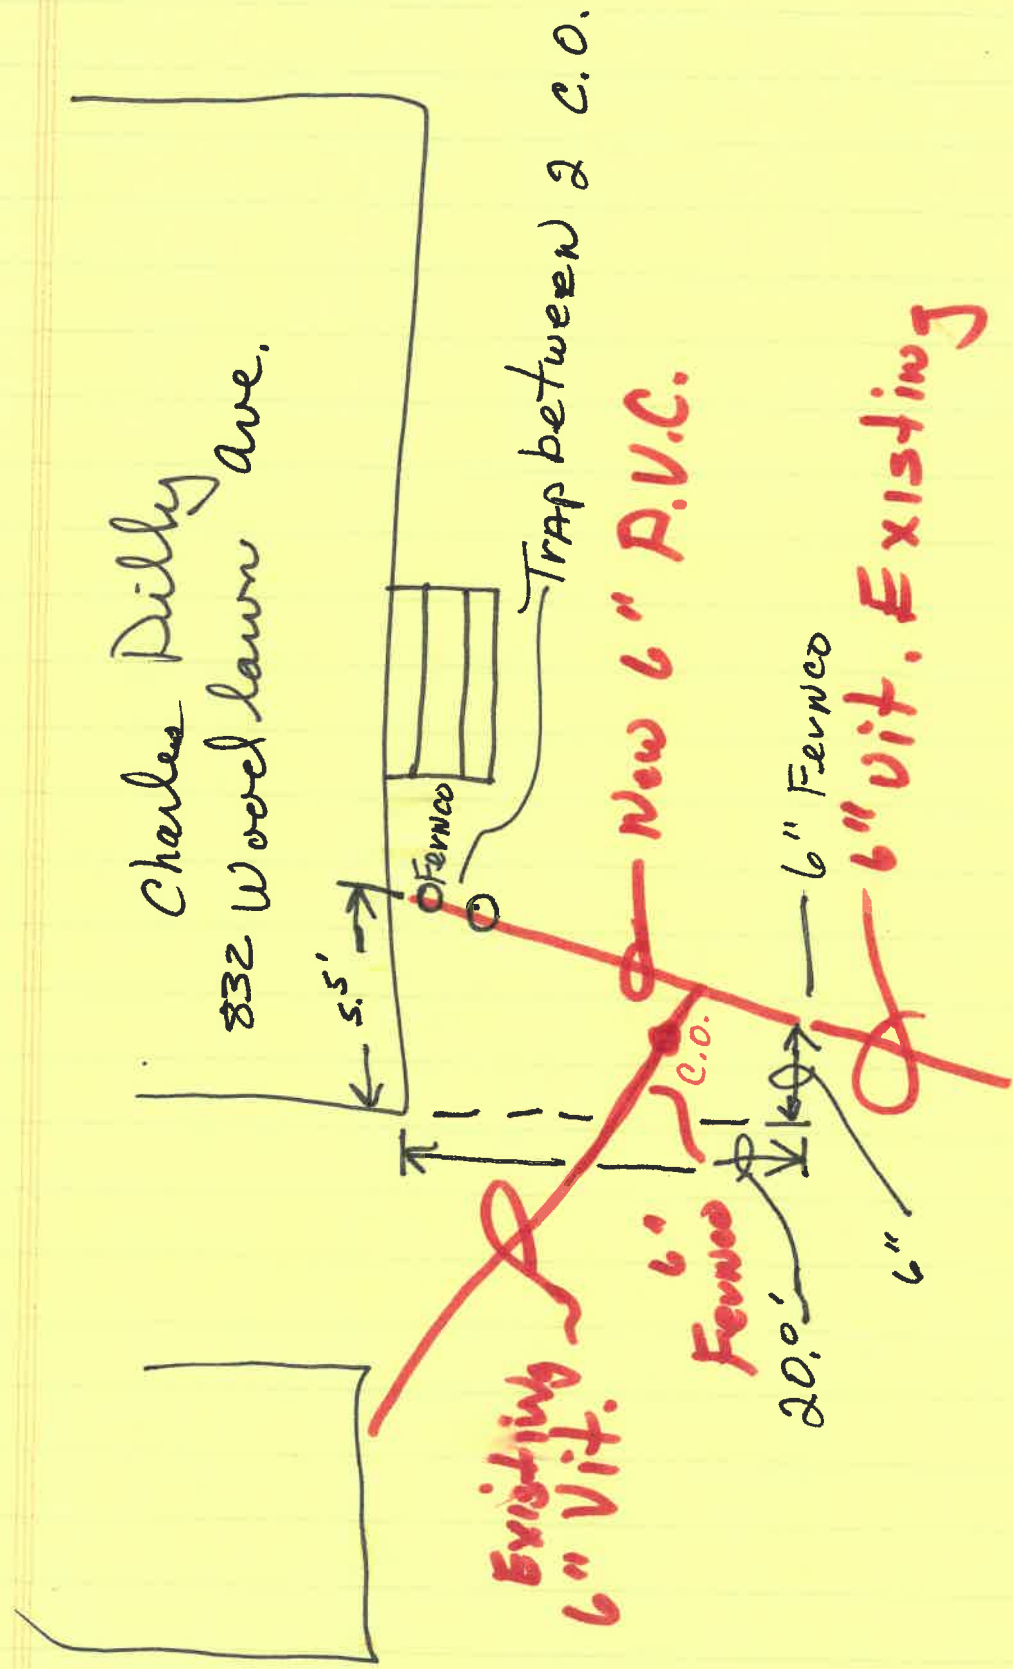 Charles Dilly
832 Woodlawn Ave.
5.5'
Fernco
Trap between 2 C.O.
New 6" P.V.C.
C.O.
6" Fernco
6" Vit. Existing
6"
Fernco
20.0'
6"
Existing
6" Vit.